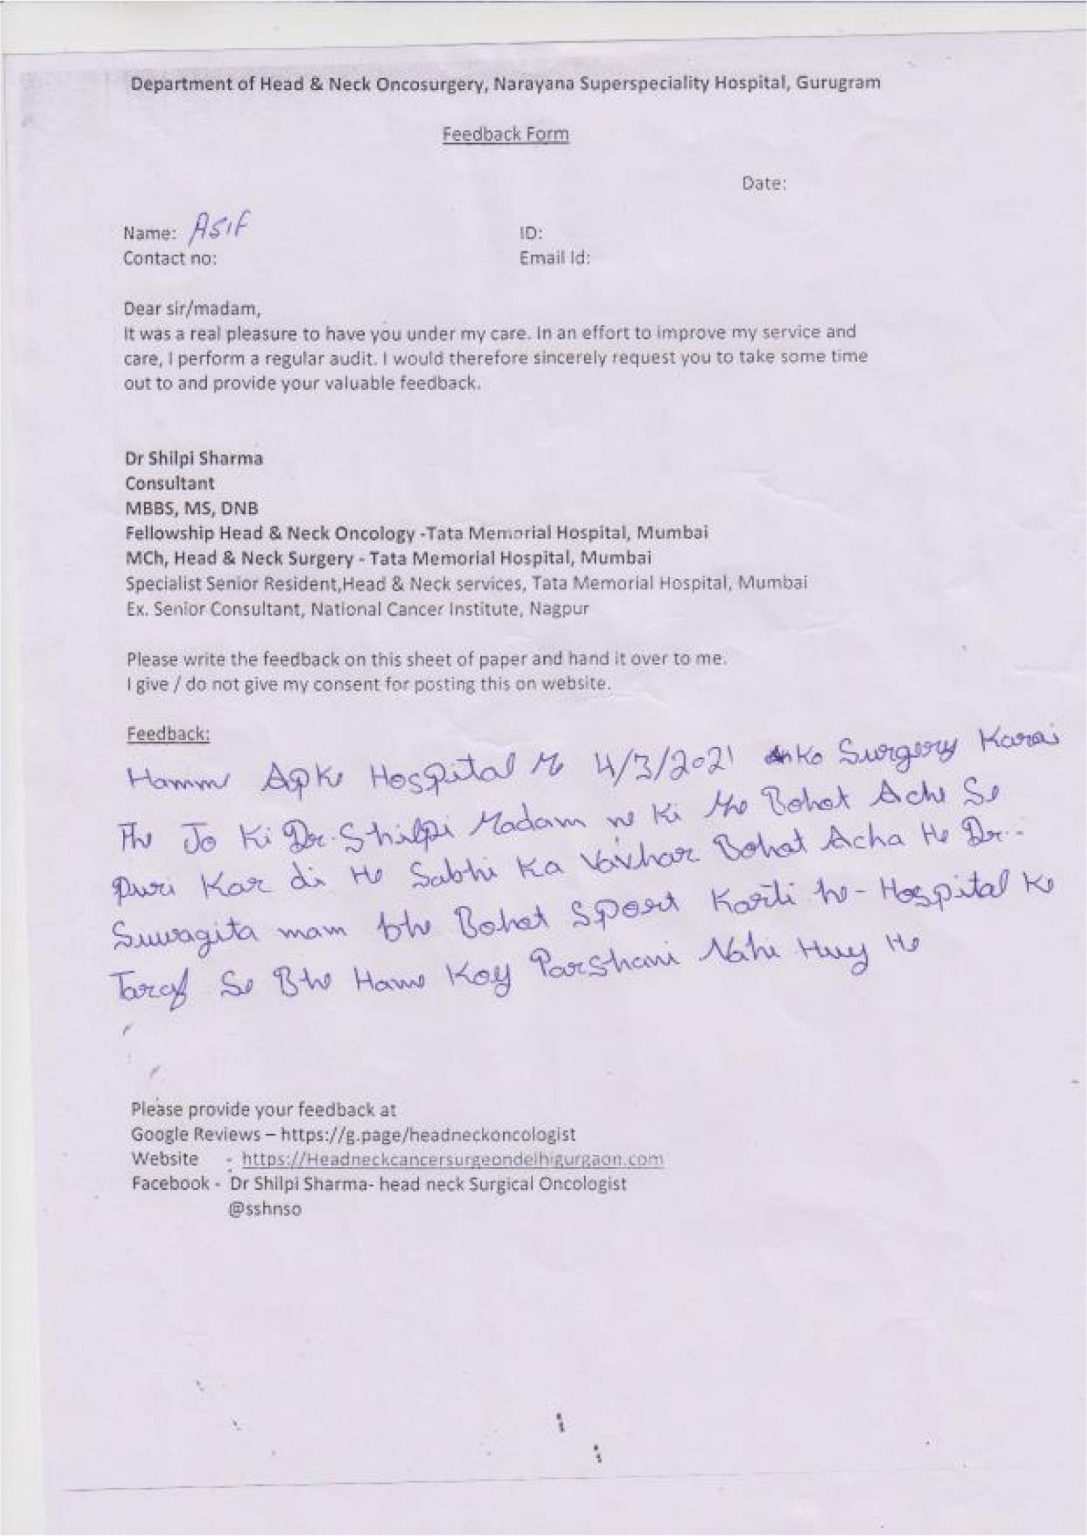 Department of Head & Neck Oncosurgery, Narayana Superspeciality Hospital, Gurugram
Feedback Form
Date:
Name: ASIF ID:
Contact no: Email Id:
Dear sir/madam,
It was a real pleasure to have you under my care. In an effort to improve my service and
care, I perform a regular audit. I would therefore sincerely request you to take some time
out to and provide your valuable feedback.
Dr Shilpi Sharma
Consultant
MBBS, MS, DNB
Fellowship Head & Neck Oncology -Tata Memorial Hospital, Mumbai
MCh, Head & Neck Surgery - Tata Memorial Hospital, Mumbai
Specialist Senior Resident,Head & Neck services, Tata Memorial Hospital, Mumbai
Ex. Senior Consultant, National Cancer Institute, Nagpur
Please write the feedback on this sheet of paper and hand it over to me.
I give / do not give my consent for posting this on website.
Feedback:
Hamne Apke Hospital Me 4/3/2021 Ko Surgery Karai
The Jo Ki Dr. Shilpi Madam ne Ki He Bohot Ache Se
Puri Kar di He Sabhi Ka Vavhar Bohat Acha He Dr.
Suwagita mam bhe Bohot Sport Karti he - Hospital Ke
Taraf Se Bhe Hame Koy Parshani Nahi Huy He
Please provide your feedback at
Google Reviews – https://g.page/headneckoncologist
Website - https://Headneckcancersurgeondelhigurgaon.com
Facebook - Dr Shilpi Sharma- head neck Surgical Oncologist
@sshnso